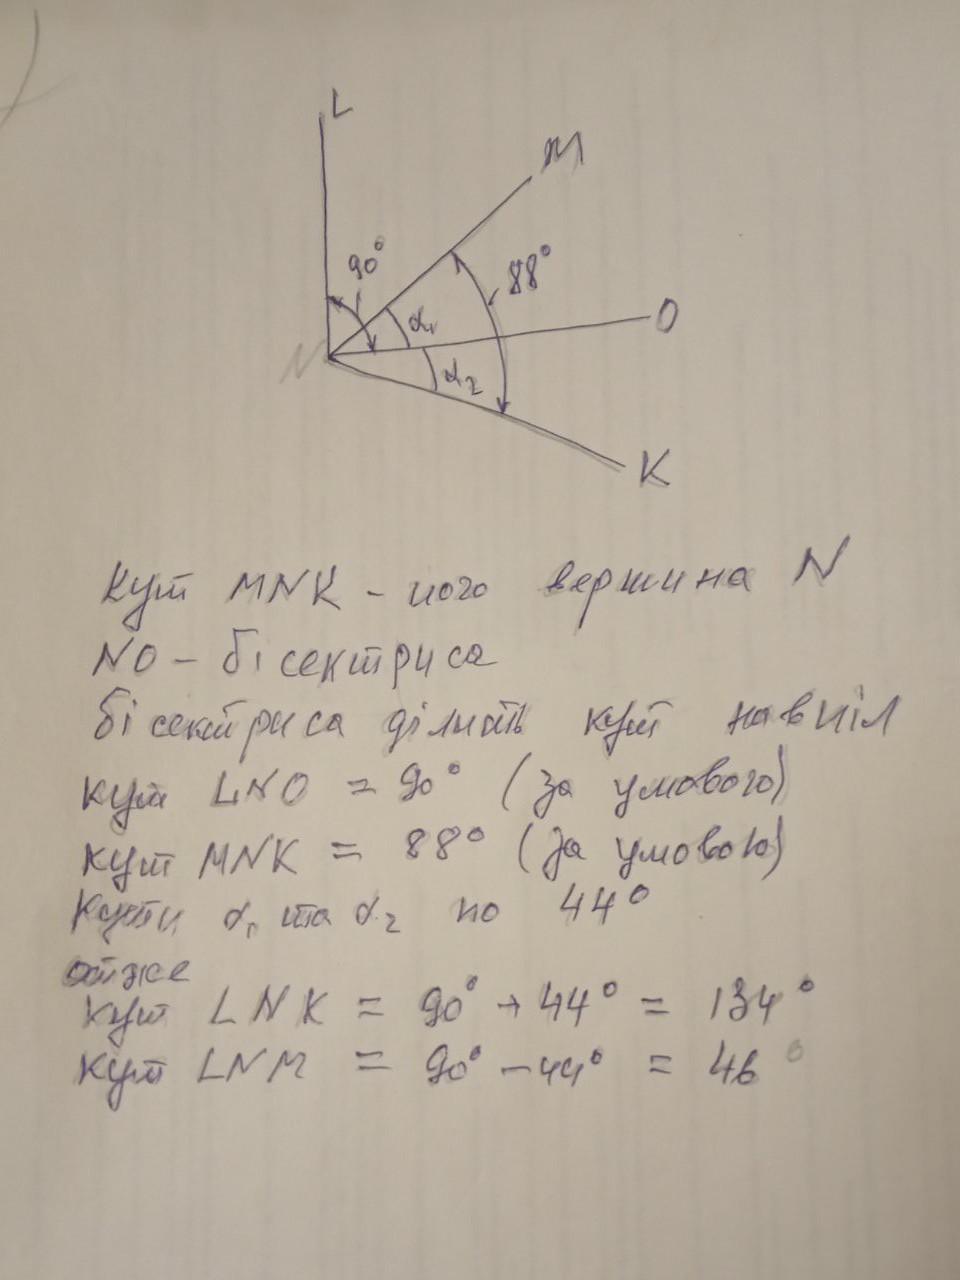 L
M
90°
88°
O
α₁
N
α₂
K
Кут MNK - його вершина N
NO - бісектриса
бісектриса ділить кут навпіл
кут LNO = 90° (за умового)
кут MNK = 88° (за умовою)
Кути α₁ та α₂ по 44°
отже
кут LNK = 90° + 44° = 134°
кут LNM = 90° - 44° = 46°